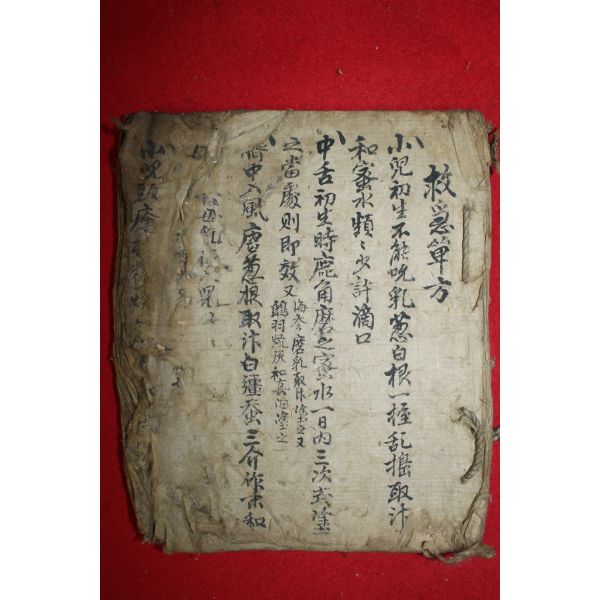 救急單方
小兒初生不能吮乳葱白根一握乱搗取汁
和蜜水類々少許滴口
中舌初生時鹿角磨之蜜水一日内三次式塗
之當處則即效又
海參磨乳取汁塗之又
鷄羽燒灰和塗之
臍中入風磨葱根取汁白殭蚕三介作末和
兒
小兒頭瘡